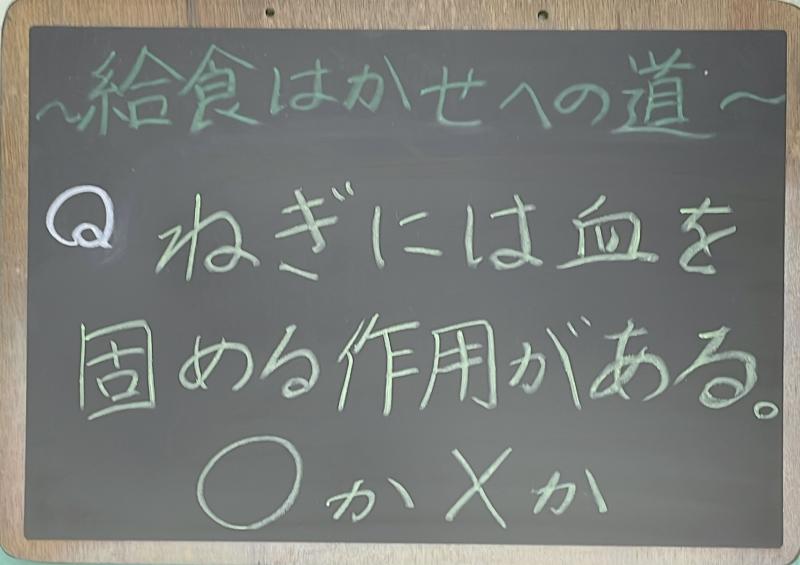 ～給食はかせへの道～
Q ねぎには血を
固める作用がある。
〇か×か